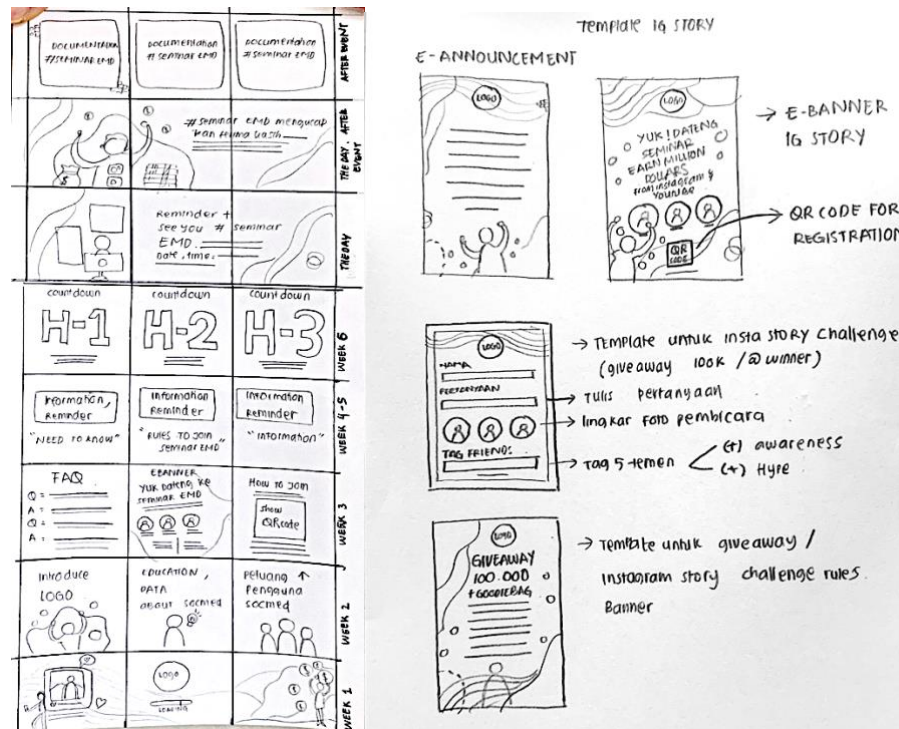 DOCUMENTATION
#SEMINAR EMD
Documentation
# seminar EMD
Documentation
# seminar EMD
AFTER EVENT
# seminar EMD mengucap
kan terima kasih
THE DAY. AFTER
EVENT
Reminder +
see you # seminar
EMD.
Date, time.
THE DAY
countdown
H-1
countdown
H-2
countdown
H-3
WEEK 6
Information,
Reminder
"NEED TO KNOW"
Information
Reminder
"RULES TO JOIN
SEMINAR EMD"
Information
Reminder
"Information"
WEEK 4-5
FAQ
Q =
A =
Q =
A =
EBANNER
YUK Dateng ke
seminar EMD
How to join
show
QR code
WEEK 3
Introduce
LOGO
EDUCATION,
DATA
about socmed
Peluang ↑
Pengguna
socmed
WEEK 2
LOGO
LOADING
WEEK 1
Template IG STORY
E-ANNOUNCEMENT
LOGO
LOGO
YUK! DATENG
SEMINAR
EARN MILLION
DOLLARS
from instagram &
Youtube
QR
CODE
→ E-BANNER
IG STORY
→ QR CODE FOR
REGISTRATION
LOGO
NAMA
PERTANYAAN
TAG FRIENDS:
→ Template untuk insta story challenge
(giveaway 100K /@ winner)
→ Tulis pertanyaan
→ lingkar foto pembicara
→ Tag 5 temen
(+) awareness
(+) Hype
LOGO
GIVEAWAY
100.000
+ GOODIEBAG
→ Template untuk giveaway /
instagram story challenge rules.
Banner